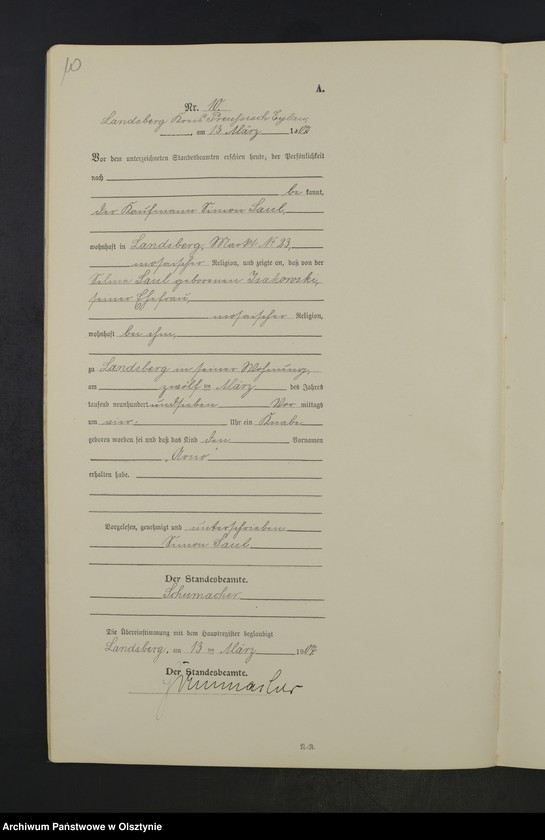 10
A.
Nr. 10.
Landsberg Kreis Preußisch Eylau,
am 13 März 1907
Vor dem unterzeichneten Standesbeamten erschien heute, der Persönlichkeit
nach
be kannt,
der Kaufmann Simon Saul,
wohnhaft in Landsberg, Markt № 23,
mosaischer Religion, und zeigte an, daß von der
Selma Saul geborenen Isakowski,
seiner Ehefrau,
mosaischer Religion,
wohnhaft bei ihm,
zu Landsberg in seiner Wohnung,
am zwölf ten März des Jahres
tausend neunhundert undsieben Vor mittags
um vier Uhr ein Knabe
geboren worden sei und daß das Kind den Vornamen
„Arno“
erhalten habe.
Vorgelesen, genehmigt und unterschrieben
Simon Saul
Der Standesbeamte.
Schumacher
Die Übereinstimmung mit dem Hauptregister beglaubigt
Landsberg, am 13 ten März 1907
Der Standesbeamte.
Schumacher
N.-R.
Archiwum Państwowe w Olsztynie